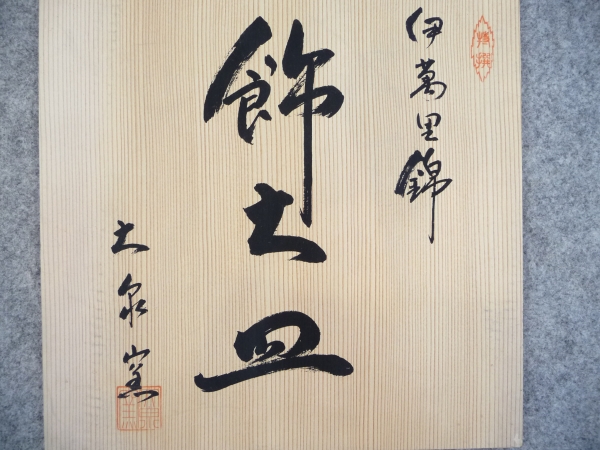 特撰
伊萬里錦
飾大皿
大泉窯